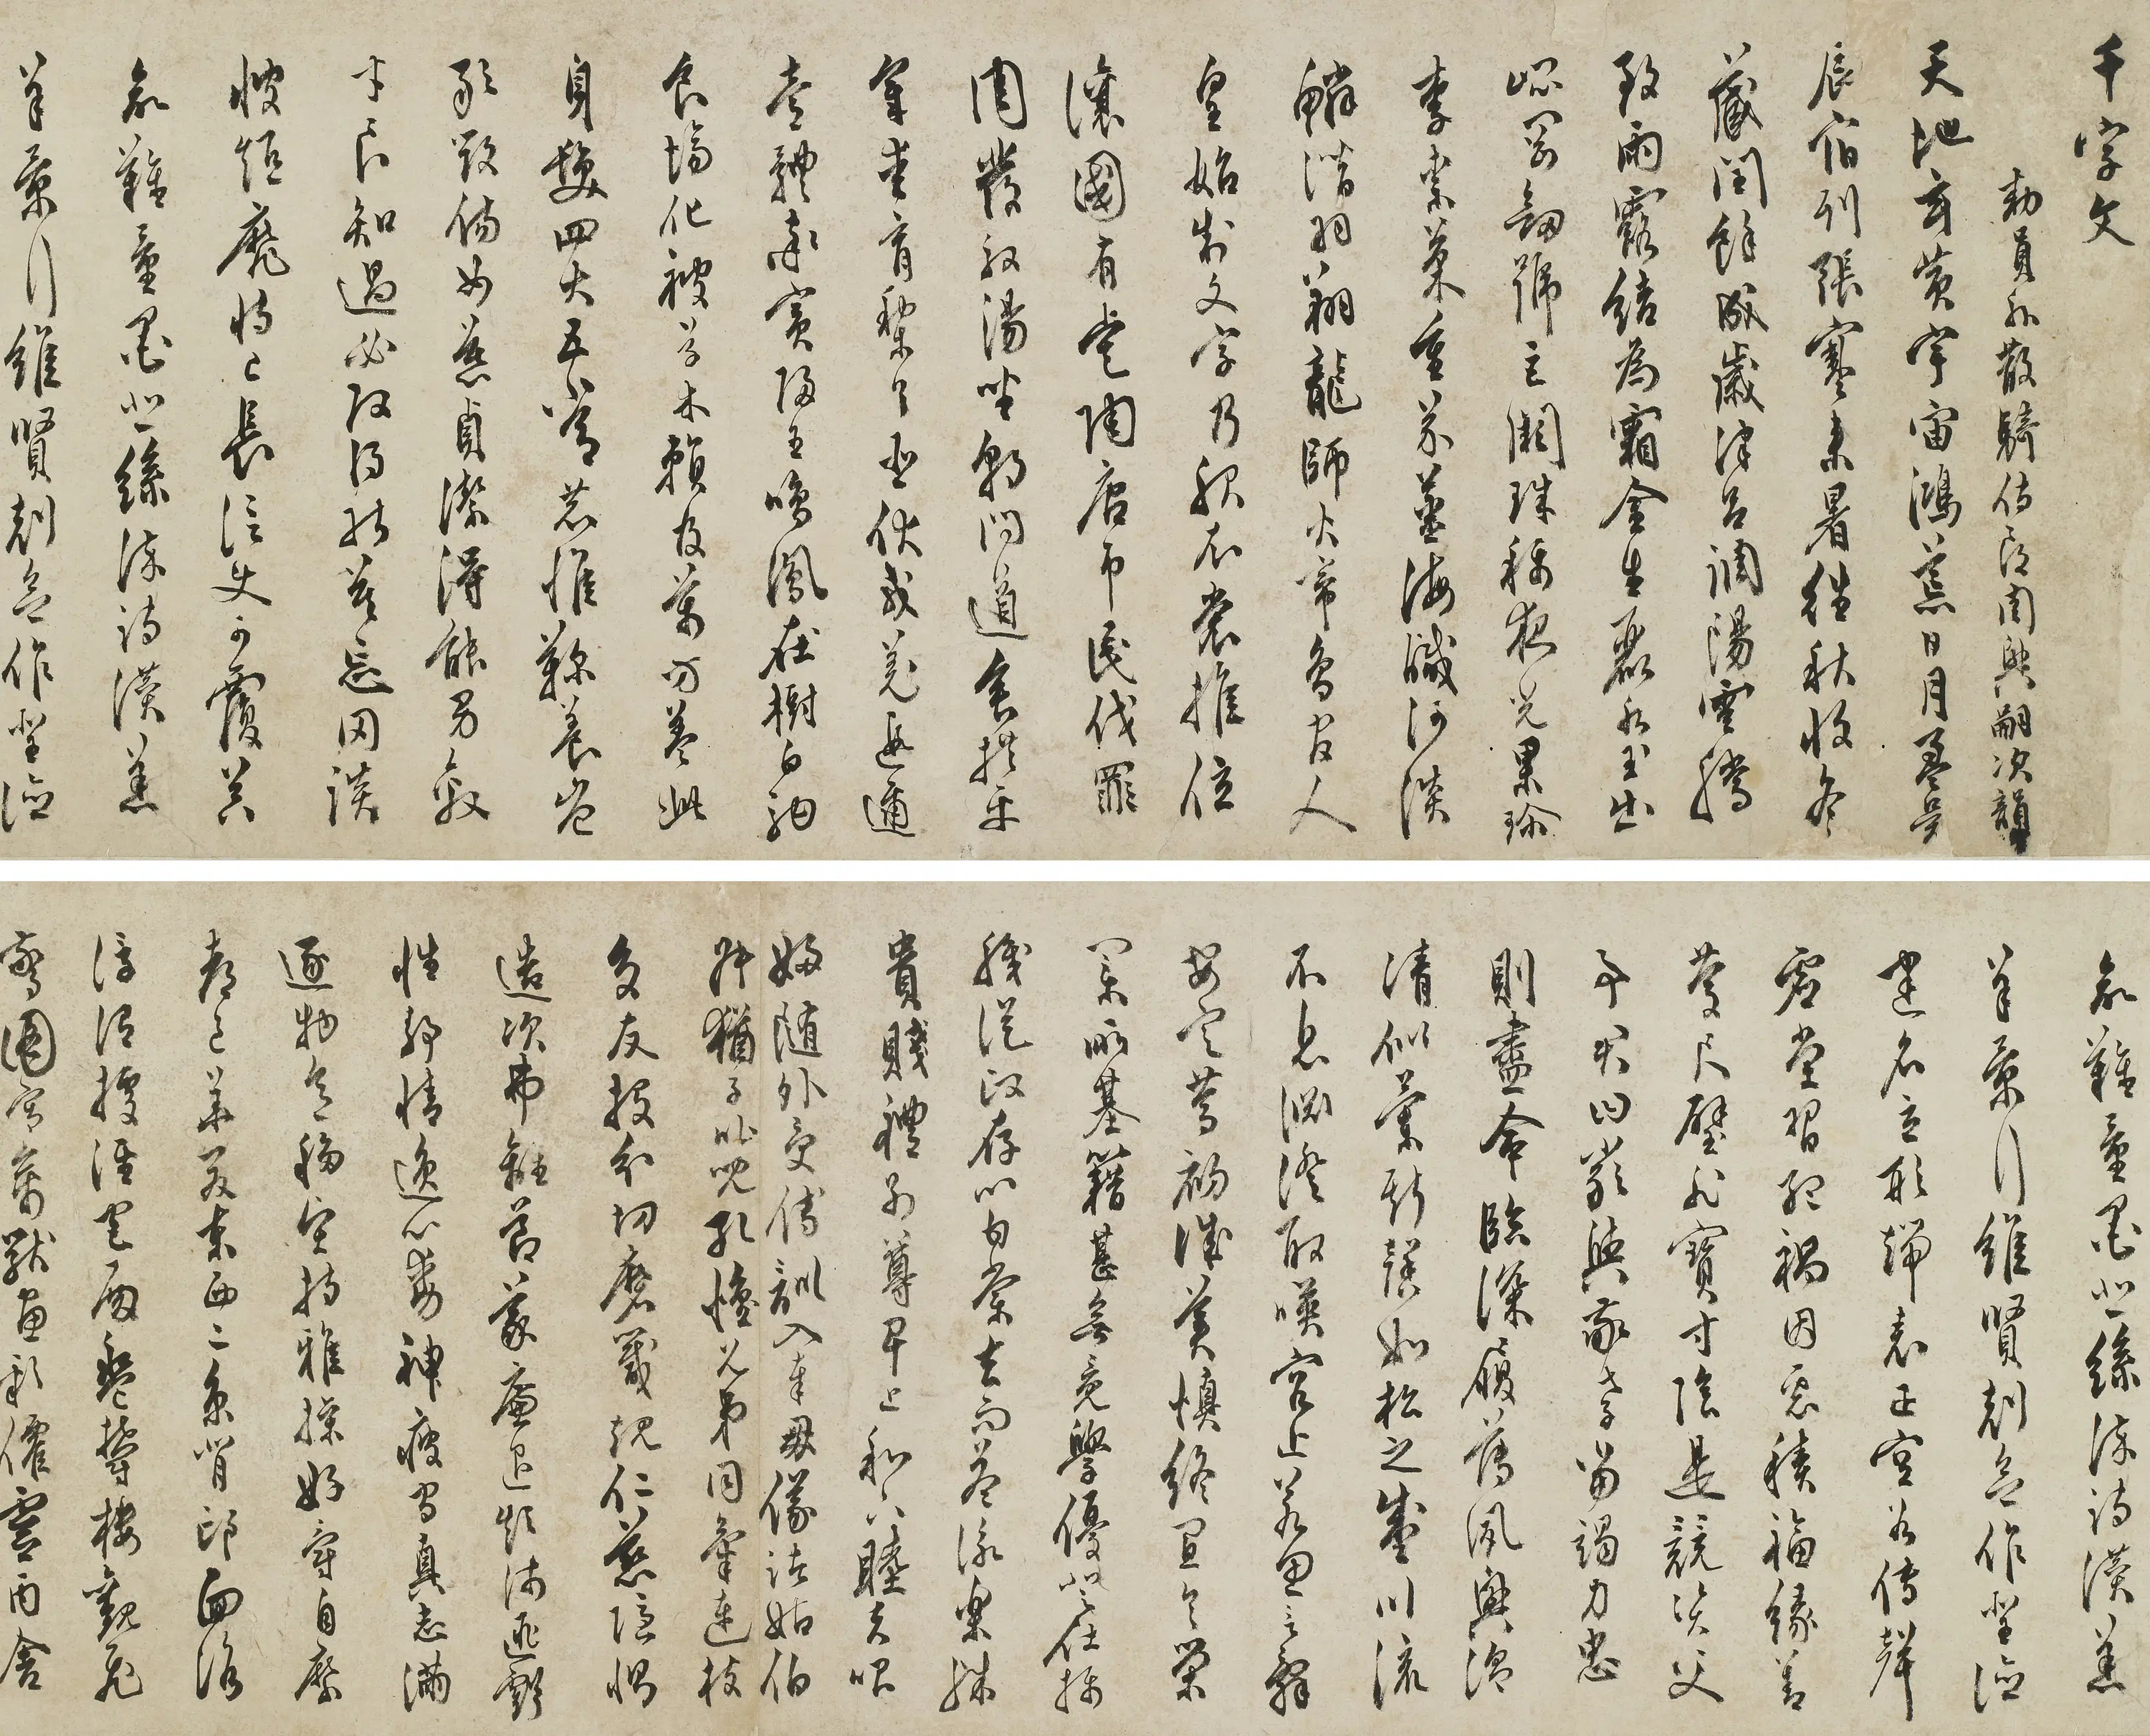 千字文
勅員外散騎侍郎周興嗣次韻
天地玄黃宇宙鴻荒日月盈昃
辰宿列張寒来暑往秋收冬
藏閏餘成歲律呂調陽雲騰
致雨露結為霜金生麗水玉出
崐罡劒號巨闕珠稱夜光果珍
李柰菜重芥薑海醎河淡
鱗潛羽翔龍師火帝鳥官人
皇始制文字乃服衣裳推位
讓國有虞陶唐弔民伐罪
周發殷湯坐朝問道垂拱平
章愛育黎首臣伏戎羌遐邇
壹體率賓歸王鳴鳳在樹白駒
食場化被草木賴及萬方蓋此
身髮四大五常恭惟鞠養豈
敢毀傷女慕貞潔得能男效
才良知過必改得能莫忘罔談
彼短靡恃己長信使可覆器
欲難量墨悲絲染詩讚羔
羊景行維賢剋念作聖德
欲難量墨悲絲染詩讚羔
羊景行維賢剋念作聖德
建名立形端表正空谷傳聲
虛堂習聽禍因惡積福緣善
慶尺璧非寶寸陰是競資父
事君曰嚴與敬孝當竭力忠
則盡命臨深履薄夙興溫
清似蘭斯馨如松之盛川流
不息淵澄取暎容止若思言辭
安定篤初誠美慎終宜令榮
業所基籍甚無竟學優登仕攝
職從政存以甘棠去而益詠樂殊
貴賤禮別尊卑上和下睦夫唱
婦隨外受傅訓入奉母儀諸姑伯
叔猶子比兒孔懷兄弟同氣連枝
交友投分切磨箴規仁慈隱惻
造次弗離節義廉退顛沛匪虧
性靜情逸心動神疲守真志滿
逐物意移堅持雅操好爵自縻
都邑華夏東西二京背邙面洛
浮渭據涇宮殿盤鬱樓觀飛
驚圖寫禽獸畫彩僊靈丙舍